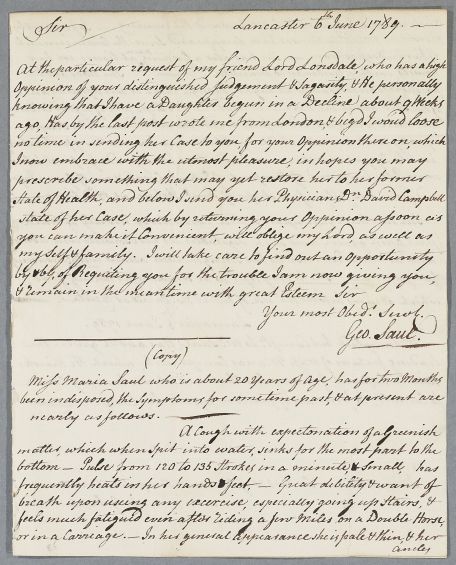 Sir
Lancaster 6th June 1789. —
At the particular request of my friend Lord Lonsdale, who has a high
Oppinion of your distinguished Judgement & Sagasity, & He personally
knowing that I have a Daughter begun in a Decline about 9 Weeks
ago, Has by the last post wrote me from London & beg'd I woud loose
no time in sending her Case to you for your Oppinion thereon, which
I now embrace with the utmost pleasure, in hopes you may
prescribe something that may yet restore her to her former
State of Health, and below I send you her Physician Dr. David Campbell
state of her Case, which by returning your Oppinion as soon as
you can make it Convenient, will oblige my Lord, as well as
my self & family. I will take care to find out an Opportunity
of Requiting you for the trouble I am now giving you,
& remain in the mean time with great Esteem Sir
Your most Obedt. Servt.
Geo. Saul.
(Copy)
Miss Maria Saul who is about 20 Years of Age, has for two Months
been indisposed, the Symptoms for some time past & at present are
nearly as follows. —
A Cough with expectoration of a Greenish
matter, which when Spit into water, sinks for the most part to the
bottom — Pulse from 120 to 135 Strokes in a minute, & small, has
frequently heats in her hands & feet — Great debility & want of
breath upon useing any exercise especially going up Stairs, &
feels much fatigued even after rideing a few Miles on a Double Horse,
or in a Carriage. — In her general appearance she is pale & thin, & her
ancles